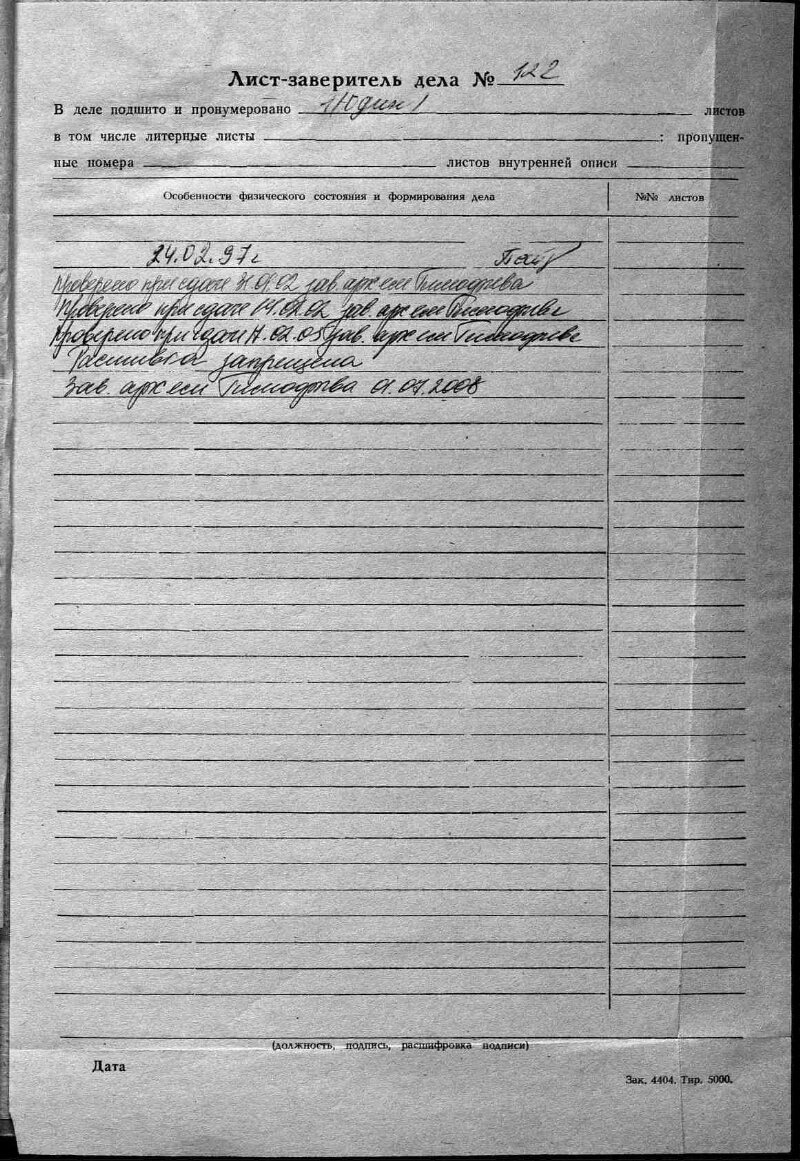 Лист-заверитель дела № 122
В деле подшито и пронумеровано 1 /Один/ листов
в том числе литерные листы ; пропущен-
ные номера листов внутренней описи
Особенности физического состояния и формирования дела №№ листов
24.02.97г
Проверено при сдаче 31.01.02 зав. арх
Проверено при сдаче 14.02.02 зав. арх
Проверено при сдачи 17.02.05 зав. арх
Расшивка запрещена
Зав. арх 01.07.2008
(должность, подпись, расшифровка подписи)
Дата
Зак. 4404. Тир. 5000.